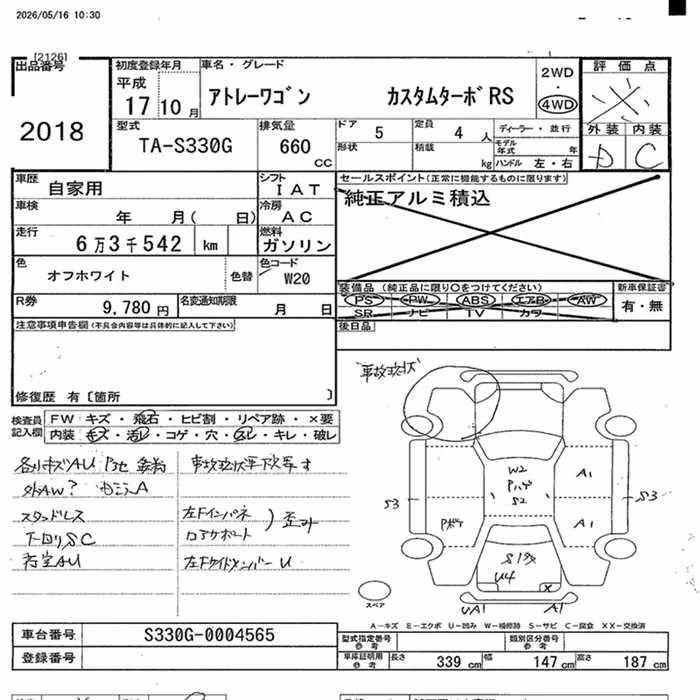 2026/05/16 10:30
[2126]
出品番号
2018
初度登録年月
平成
17 10 月
車名・グレード
アトレーワゴン カスタムターボRS
2WD
・
4WD
評価点
外装 内装
D C
型式
TA-S330G
排気量
660 CC
ドア 5
定員 4 人
形状
積載 kg
ディーラー・並行
モデル年式 年
ハンドル 左・右
車歴 自家用
シフト IAT
車検 年 月( 日)
冷房 AC
走行 6万3千542 km
燃料 ガソリン
色 オフホワイト 色替
色コード W20
R券 9,780 円
名変通知期限 月 日
セールスポイント(正常に機能するものに限ります)
純正アルミ積込
装備品(純正品に限り○をつけてください)
PS PW ABS エアB AW
SR ナビ TV カワ
新車保証書
有・無
後日品
注意事項申告欄(不具合内容等は具体的に記入して下さい)
修復歴 有〔箇所 〕
検査員記入欄
FW キズ・飛石・ヒビ割・リペア跡・×要
内装 キズ・汚レ・コゲ・穴・スレ・キレ・破レ
事故現状
事故現状車下次寺す
スタッドレス
下回りSC
左Fインパネ
ロアサポート
W2
S2
A1
A1
S3
S3
U4
X
UA1
A1
スペア
A-キズ E-エクボ U-凹み W-補修跡 S-サビ C-腐食 XX-交換済
車台番号 S330G-0004565
登録番号
型式指定番号 参考
類別区分番号 参考
車庫証明用 参考 長さ 339 cm 幅 147 cm 高さ 187 cm